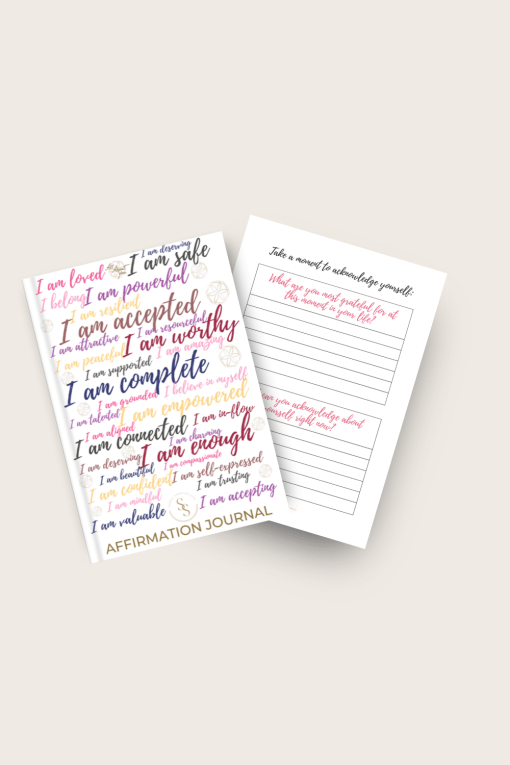 I am deserving
I am loved
I am safe
I belong
I am powerful
I am resilient
I am accepted
I am attractive
I am resourceful
I am worthy
I am peaceful
I am amazing
I am supported
I am complete
I am grounded
I believe in myself
I am talented
I am empowered
I am aligned
I am in-flow
I am connected
I am charming
I am enough
I am deserving
I am compassionate
I am beautiful
I am self-expressed
I am confident
I am trusting
I am mindful
I am accepting
I am valuable
AFFIRMATION JOURNAL
Take a moment to acknowledge yourself:
What are you most grateful for at
this moment in your life?
can you acknowledge about
yourself right now?